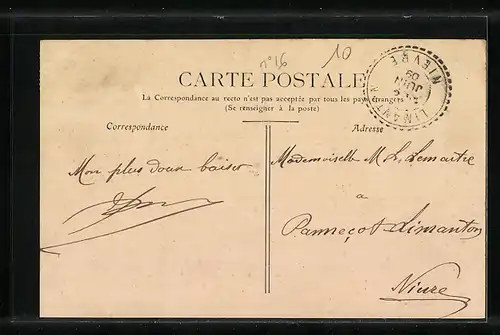 n° 16
10
CARTE POSTALE
La Correspondance au recto n'est pas acceptée par tous les pays étrangers
(Se renseigner à la poste)
Correspondance
Adresse
NIEVRE
JUIN
09
LIMANTON
Mon plus doux baiser
Mademoiselle M. L. Lemaitre
a
Panneçot Limanton
Nièvre